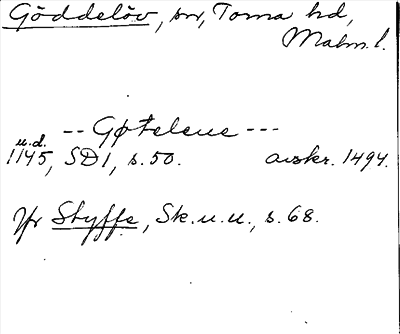 Göddelöv, sn, Torna hd,
Malm. l.
-- Gøteleue ---
u.d.
1145, SD1, s. 50. avskr. 1494.
Jfr Styffe, Sk. u. u., s. 68.